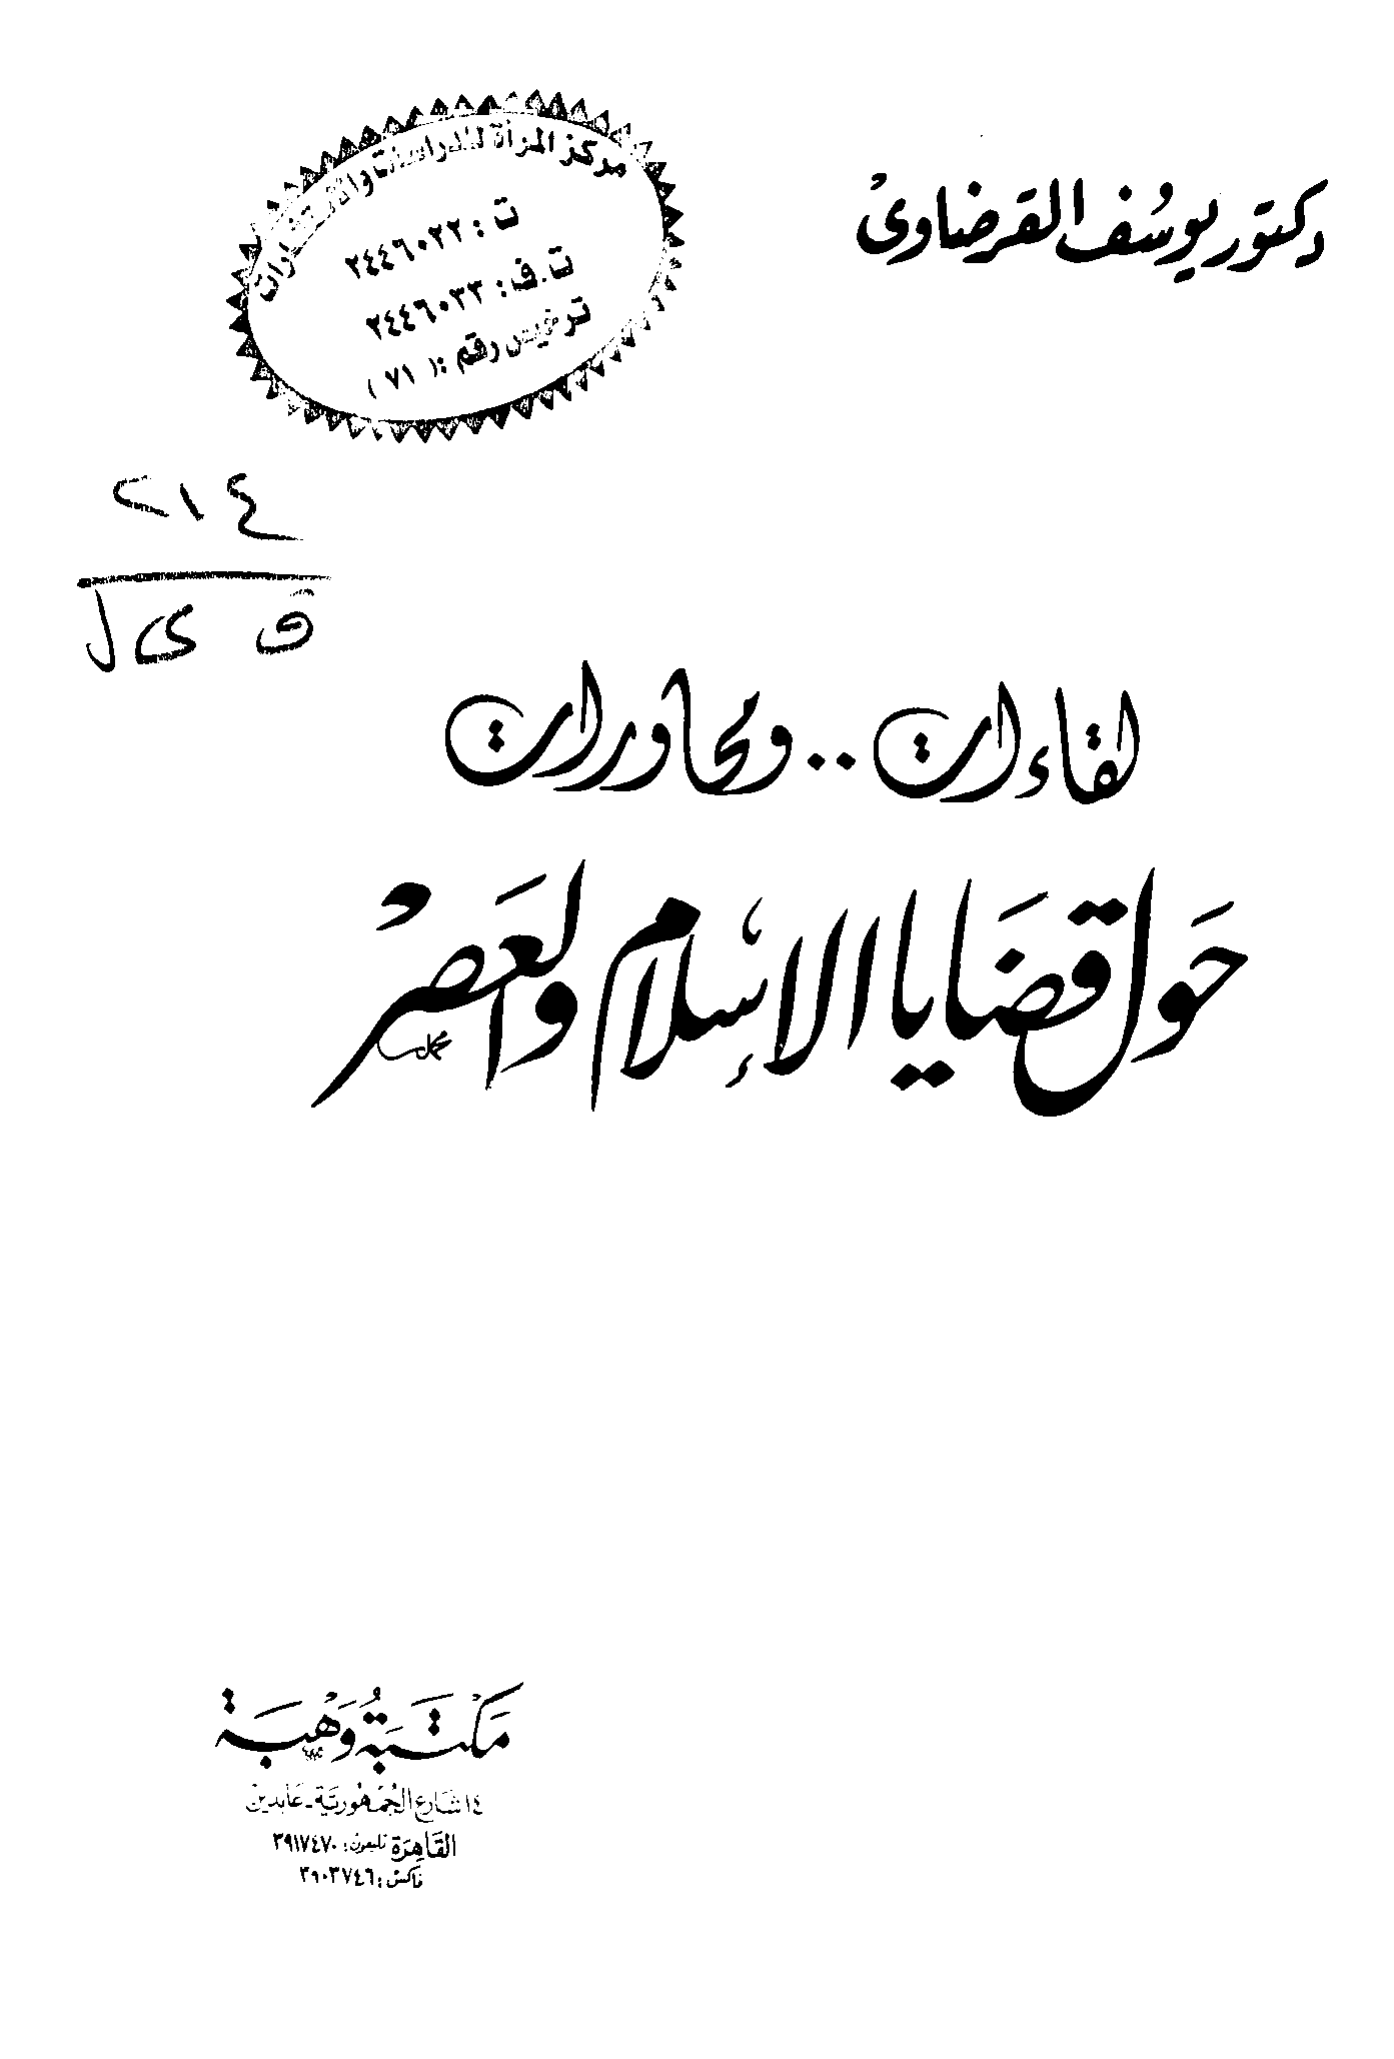 دكتور يوسف القرضاوى
مركز المرأة للدراسات والاستشارات
ت : ٢٤٤٦٠٢٢
ت . ف : ٢٤٤٦٠٣٣
ترخيص رقم : ( ٧١ )
٢١٤
ل
لقاءات .. ومحاورات
حَول قضَايا الإسلام والعَصْر
محمد
مَكتَبَة وَهْبَة
١٤ شَارع الجُمْهُوريَّة - عَابدين
القَاهِرَة تليفون : ٣٩١٧٤٧٠
فاكس : ٣٩٠٣٧٤٦